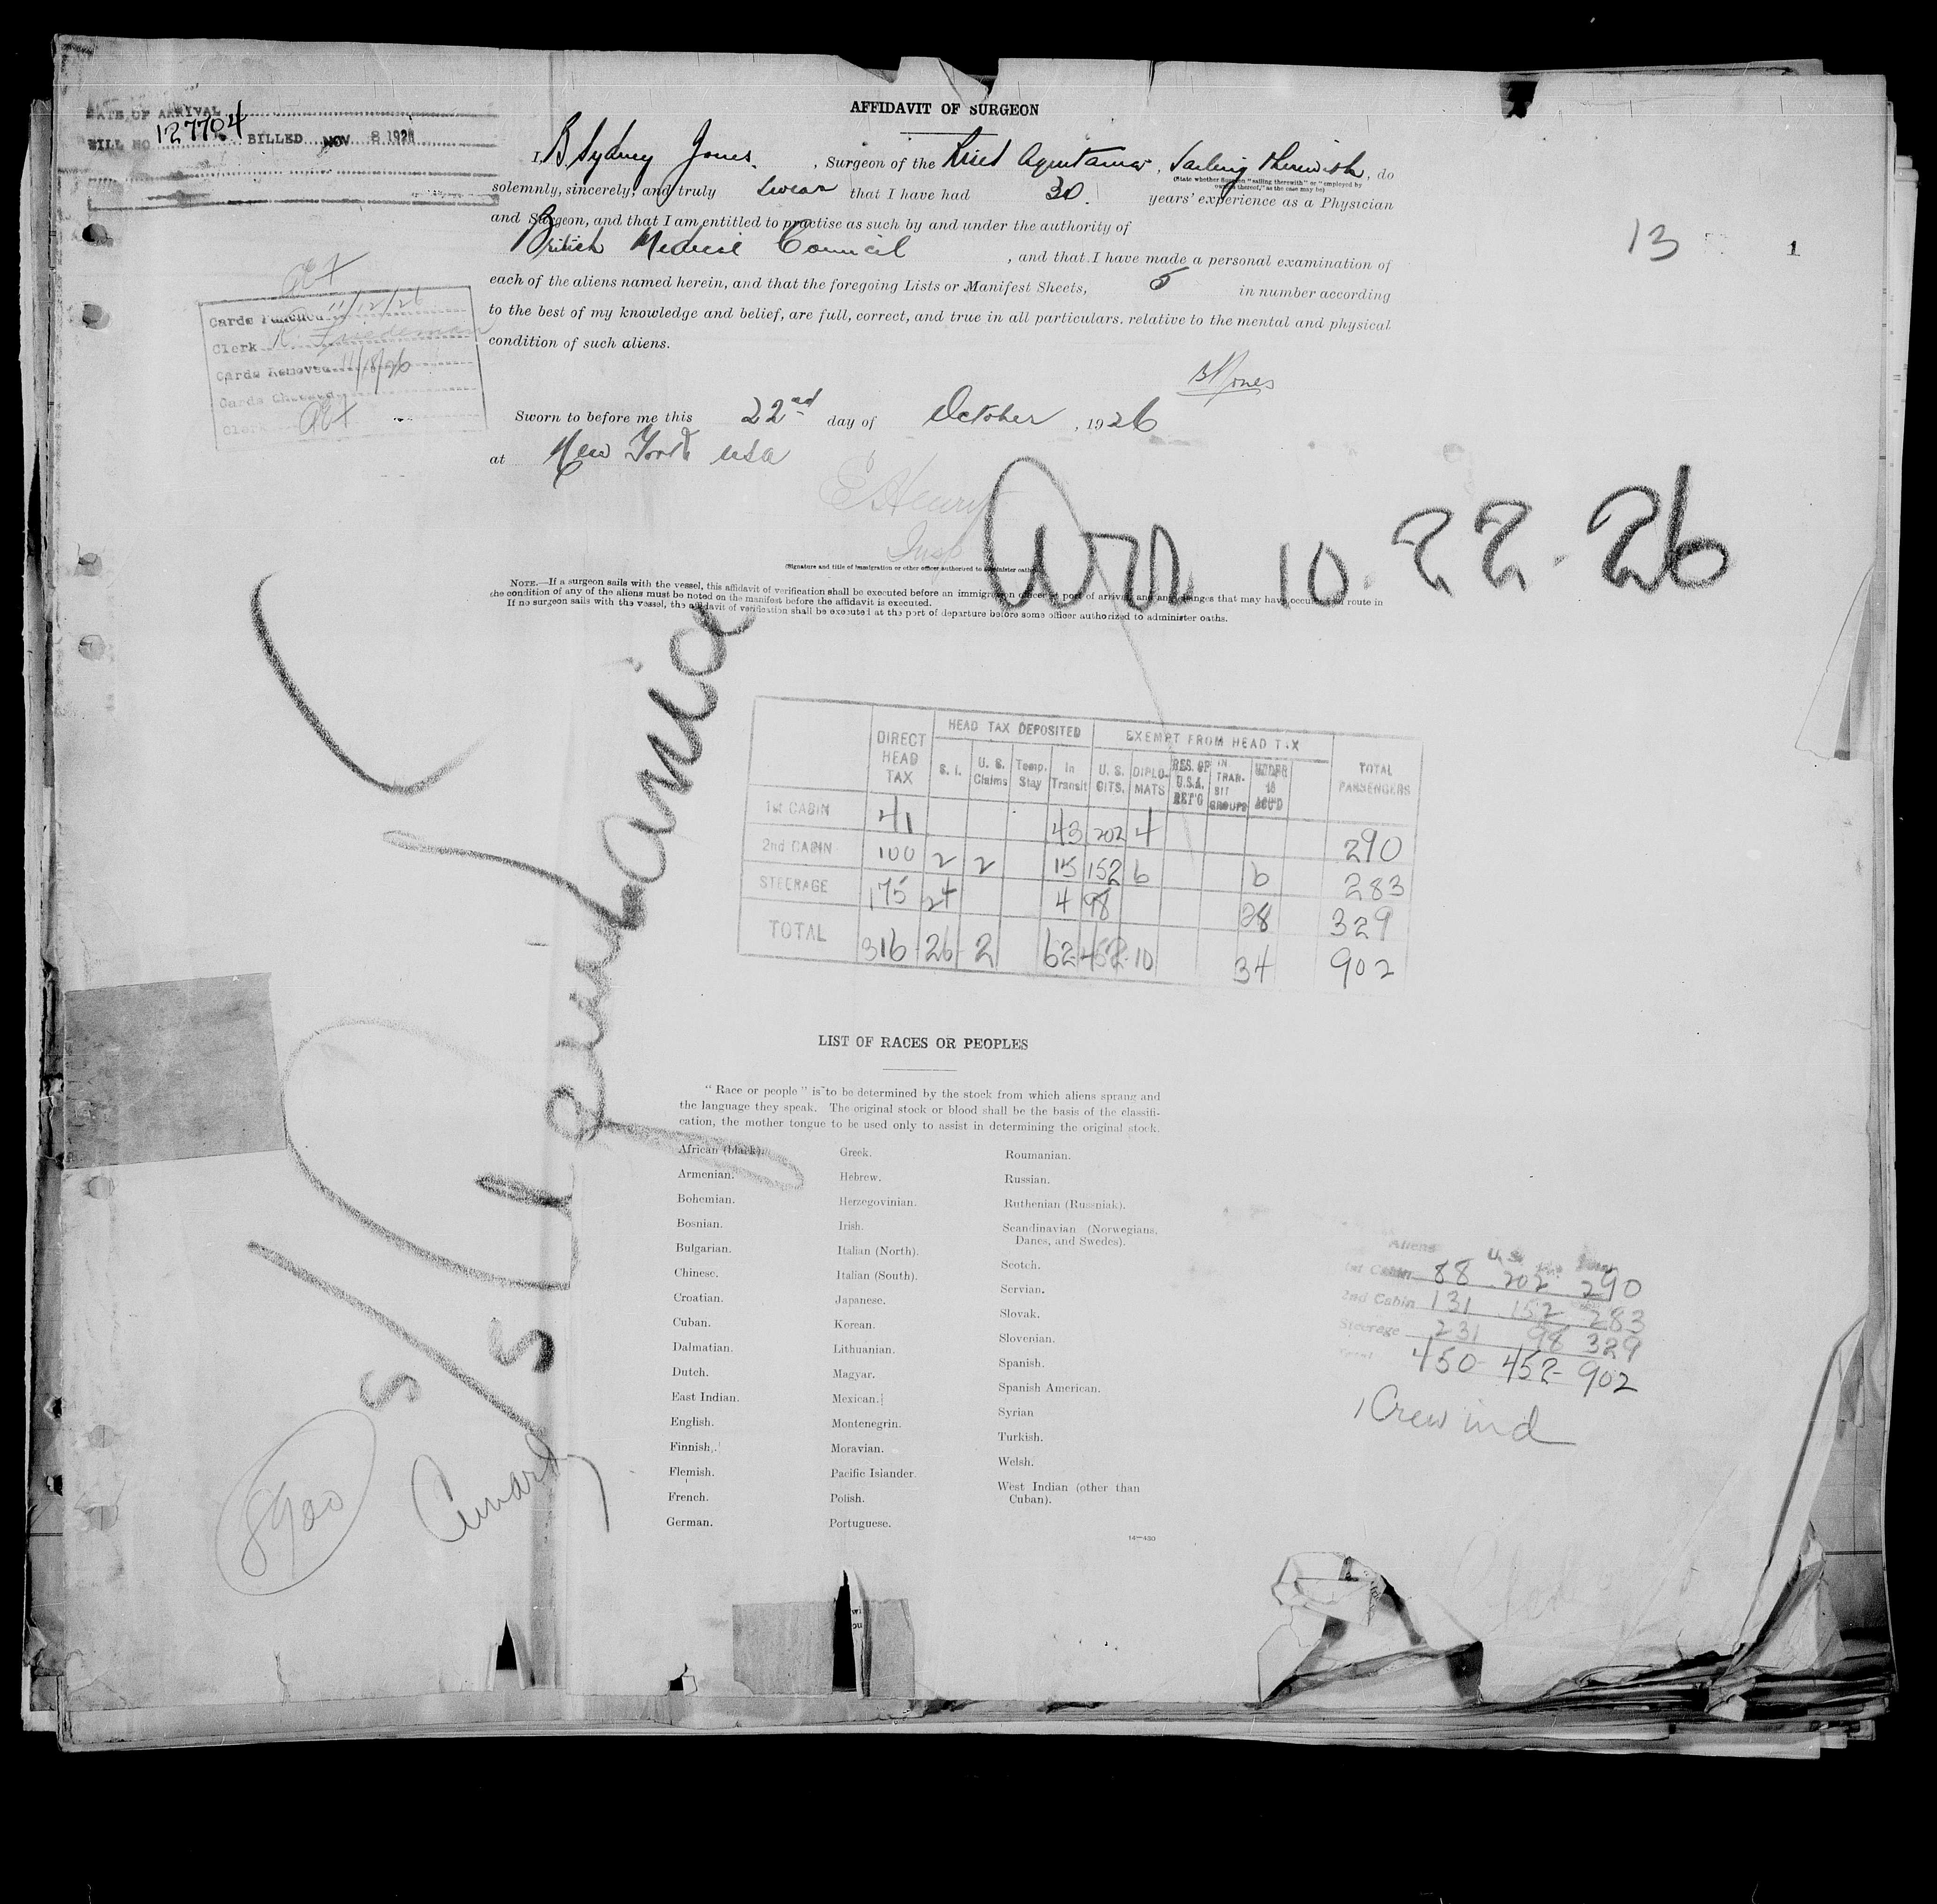 DATE OF ARRIVAL
BILL NO 127704 BILLED NOV 8 1926
AFFIDAVIT OF SURGEON
I, B Sydney Jones, Surgeon of the Aquitania, Sailing therewith, do
(State whether Surgeon "sailing therewith" or "employed by
owners thereof," as the case may be)
solemnly, sincerely, and truly swear that I have had 30 years' experience as a Physician
and Surgeon, and that I am entitled to practise as such by and under the authority of
British Medical Council, and that I have made a personal examination of
each of the aliens named herein, and that the foregoing Lists or Manifest Sheets, 5 in number according
to the best of my knowledge and belief, are full, correct, and true in all particulars. relative to the mental and physical
condition of such aliens.
BSJones
Sworn to before me this 22nd day of October, 1926
at New York USA
E Henry
Insp
(Signature and title of immigration or other officer authorized to administer oaths)
13
1
Cards Punched 11/12/26
Clerk Friedeman
Cards Removed 11/18/26
Cards Checked
Clerk
Arr 10.22.26
NOTE.—If a surgeon sails with the vessel, this affidavit of verification shall be executed before an immigration officer at port of arrival, and any changes that may have occurred en route in
the condition of any of the aliens must be noted on the manifest before the affidavit is executed.
If no surgeon sails with the vessel, the affidavit of verification shall be executed at the port of departure before some officer authorized to administer oaths.
S/S Aquitania
Cunard
8900
DIRECT HEAD TAX HEAD TAX DEPOSITED EXEMPT FROM HEAD TAX TOTAL PASSENGERS
S. I. U. S. Claims Temp. Stay In Transit U. S. CITS. DIPLOMATS RES. OF U.S.A. RET'G IN TRANSIT GROUPS UNDER 16 ACC'D
1st CABIN 41 43 202 4 290
2nd CABIN 100 2 2 15 152 6 6 283
STEERAGE 175 24 4 98 28 329
TOTAL 316 26 2 62 452 10 34 902
LIST OF RACES OR PEOPLES
"Race or people" is to be determined by the stock from which aliens sprang and
the language they speak. The original stock or blood shall be the basis of the classifi-
cation, the mother tongue to be used only to assist in determining the original stock.
African (black).
Armenian.
Bohemian.
Bosnian.
Bulgarian.
Chinese.
Croatian.
Cuban.
Dalmatian.
Dutch.
East Indian.
English.
Finnish.
Flemish.
French.
German.
Greek.
Hebrew.
Herzegovinian.
Irish.
Italian (North).
Italian (South).
Japanese.
Korean.
Lithuanian.
Magyar.
Mexican.
Montenegrin.
Moravian.
Pacific Islander.
Polish.
Portuguese.
Roumanian.
Russian.
Ruthenian (Russniak).
Scandinavian (Norwegians,
Danes, and Swedes).
Scotch.
Servian.
Slovak.
Slovenian.
Spanish.
Spanish American.
Syrian
Turkish.
Welsh.
West Indian (other than
Cuban).
14—430
Aliens U. S. Total
1st Cabin 88 202 290
2nd Cabin 131 152 283
Steerage 231 98 329
Total 450 452 902
1 Crew ind